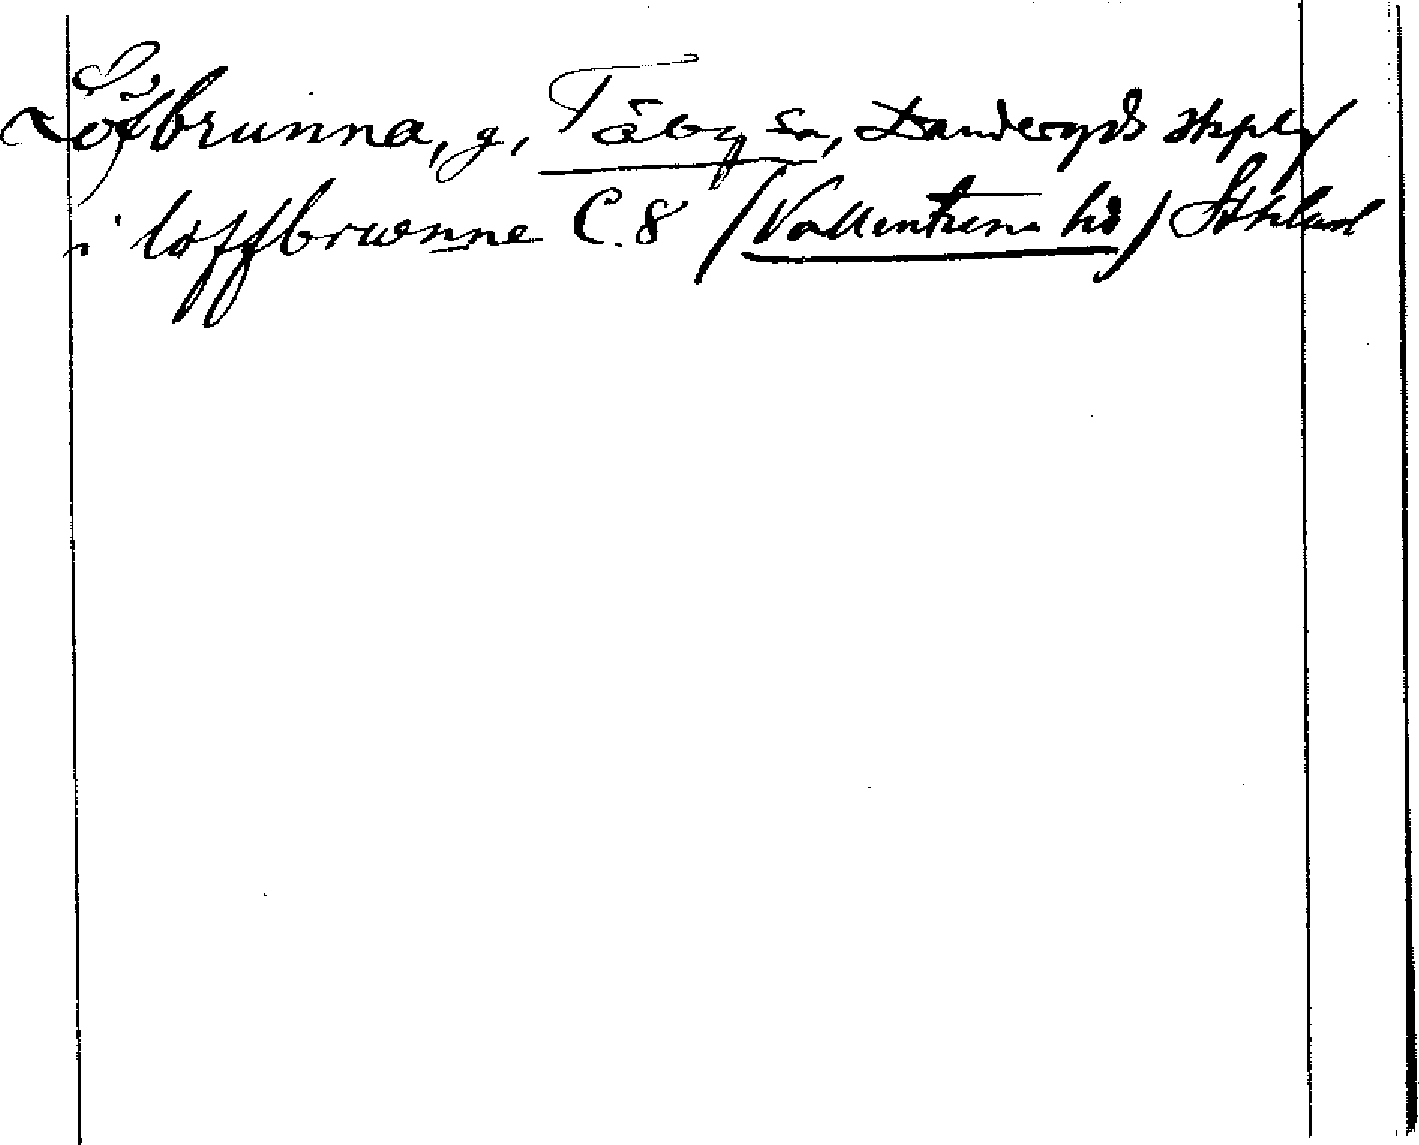 Löfbrunna, g, Täby sn, Danderyds skpl
i loffbrwnne C. 8 (Vallentuna hd) Sthlms l